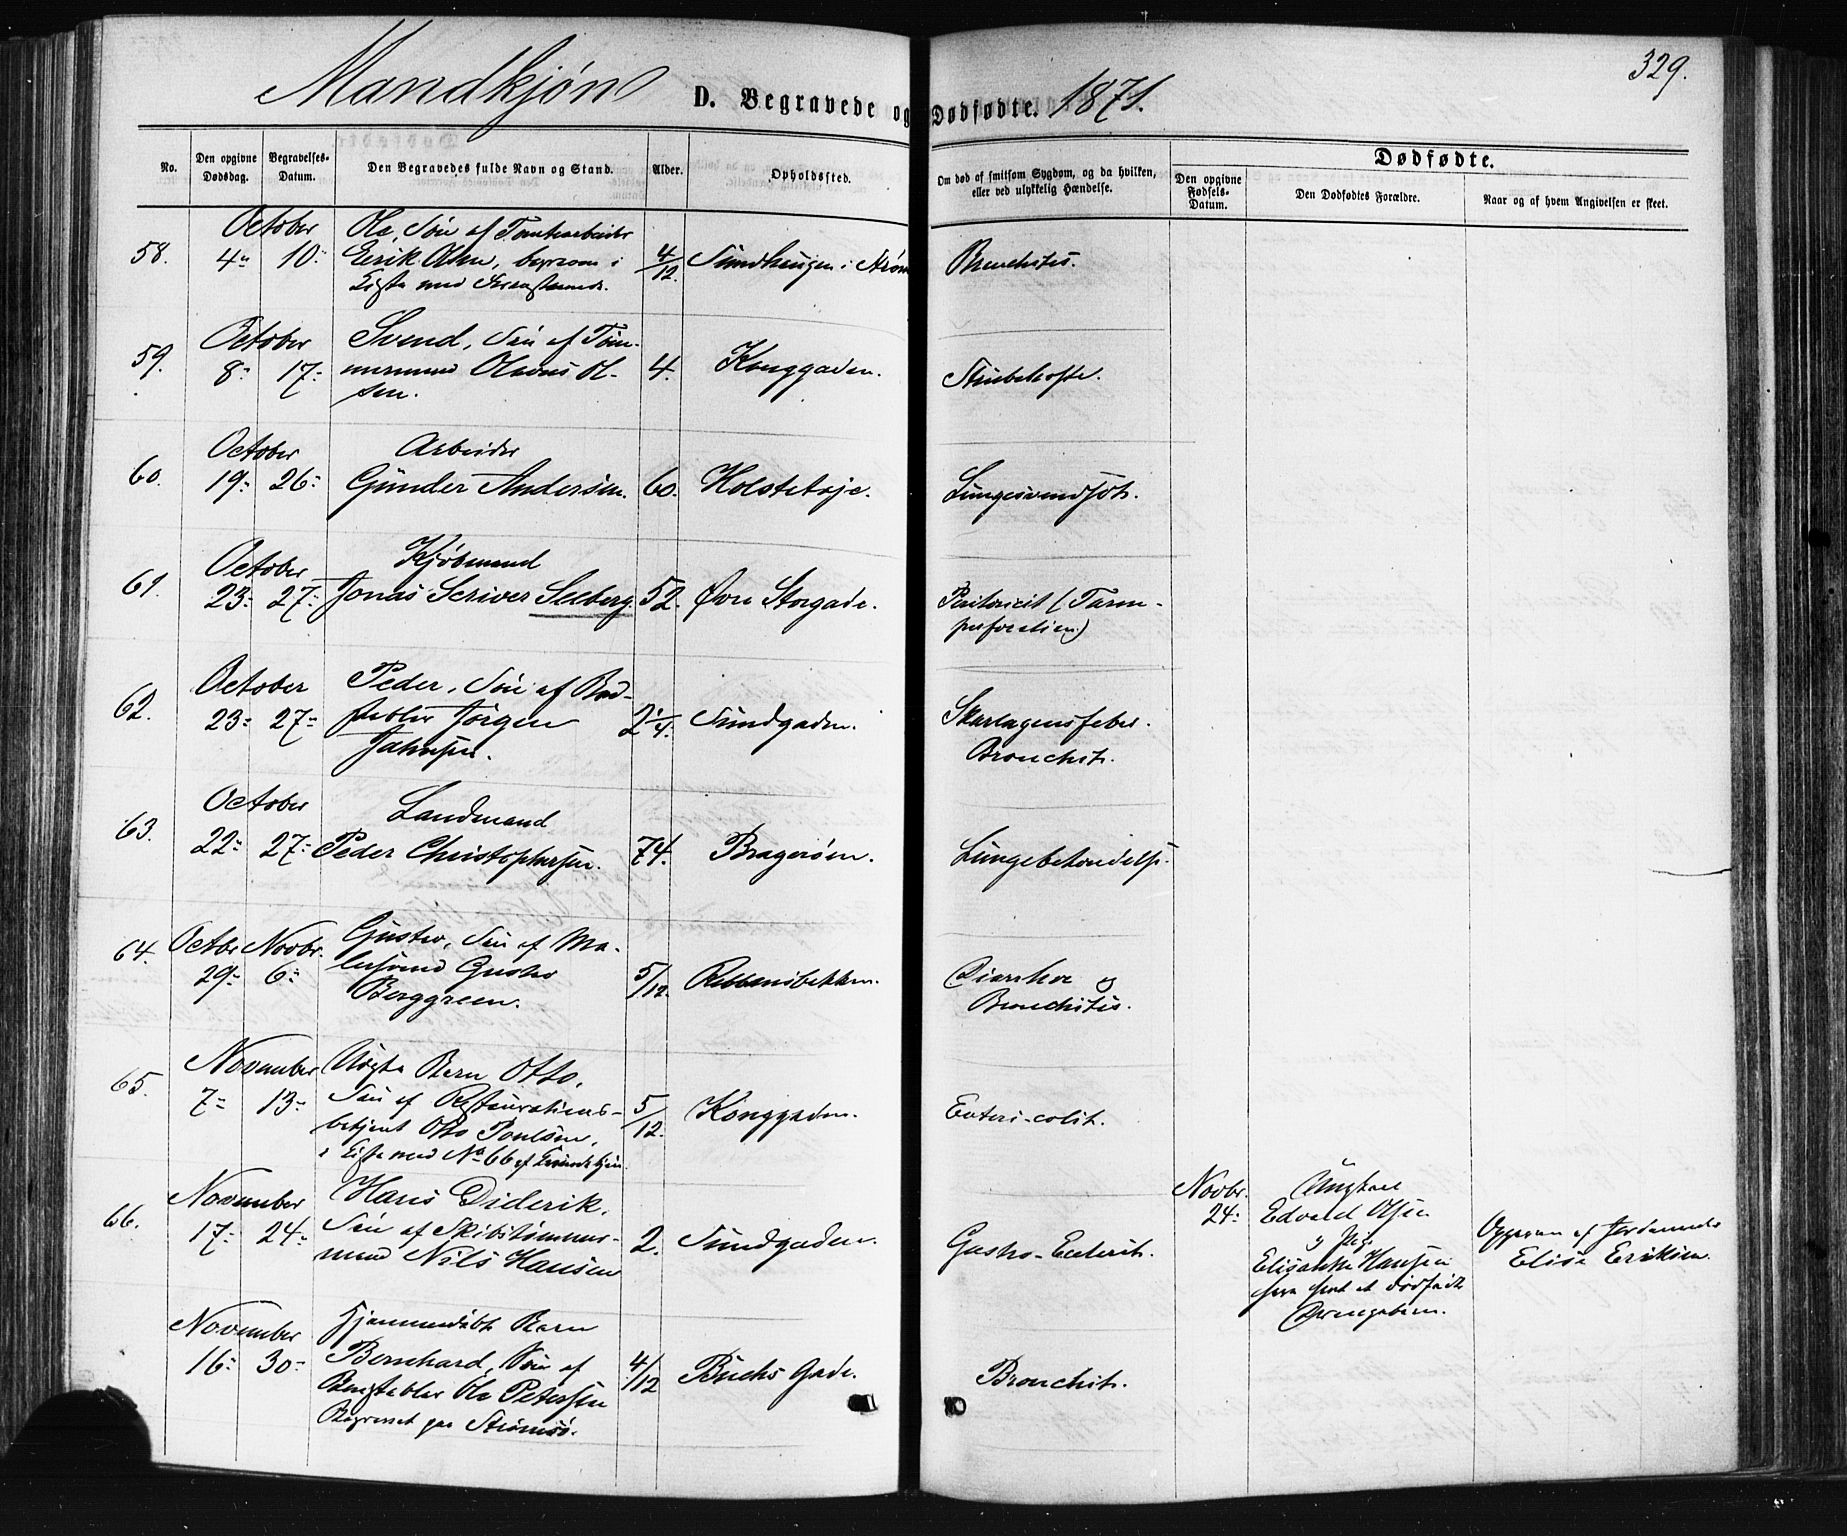 329.
Mandkjøn D. Begravede og Dødfødte. 1871.
No. Den opgivne Dødsdag. Begravelses-Datum. Den Begravedes fulde Navn og Stand. Alder. Opholdssted. Om død af smitsom Sygdom, og da hvilken, eller ved ulykkelig Hændelse.
Dødfødte.
Den opgivne Fødsels-Datum. Den Dødfødtes Forældre. Naar og af hvem Angivelsen er skeet.
October Ole, Søn af Tomtearbeider
58. 4 10 Eirik Olsen, begraven i 4/12 Sundhaugen i Strøm Bronchitis.
Kiste med
October Svend, Søn af Tøm-
59. 8 17 mermand Olavus Ol- 4. Konggaden. Strubehoste.
sen.
October Arbeider
60. 19 26 Gunder Andersen. 60. Holstetøje.
October Kjøbmand
61. 23 27 Jonas Scriver Seeberg 52. Øvre Storgade. Peritonit (Tarm-
perforation)
October Peder, Søn af Bød-
62. 23 27 Jørgen 2 1/4. Sundgaden. Skarlagensfeber.
Johnsen. Bronchit.
October Landmand
63. 22 27 Peder Christophersen. 74. Bragerøen. Lungebetændelse.
64. Octbr Novbr. Gustav, Søn af Ma-
29 6 lersvend Gustav 5/12. Diarrhoe og
Berggreen. Bronchitis.
November Uægte Barn Otto,
65. 7 13 Søn af Restaurations- 5/12. Konggaden. Enteri-colit.
betjent Otto Poulsen,
i Kiste med No 66 af Kvindekjøn.
November Hans Diderik,
66. 17 24 Søn af Skibstømmer- 2. Sundgaden. Gastro-Enterit.
mand Nils Hansen
Novbr. Ungkarl
24 Edvald Olsen
og Pige
Elisabeth Hansen
et dødfødt
Drengebarn.
Opgivet af Jordemoder
Elise Eriksen.
November Hjemmedøbt Barn
16 30 Bernhard, Søn af 4/12 Buchs Gade. Bronchit.
Ole Petersen
Begravet paa Strømsø.